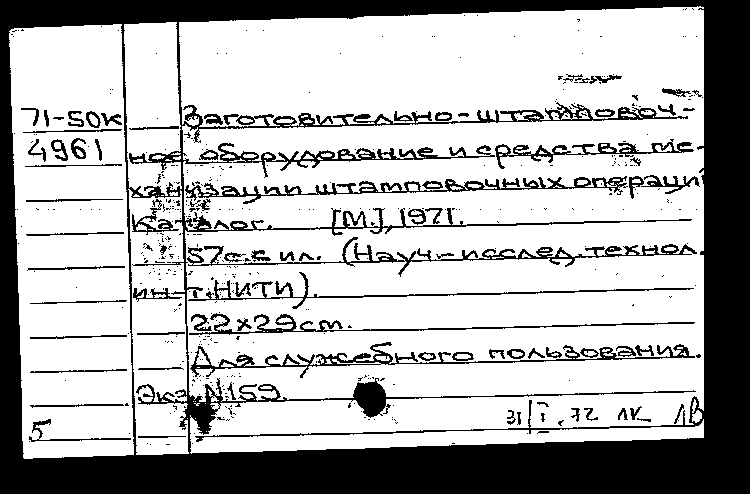 71-50к Заготовительно-штамповоч-
4961 ное оборудование и средства ме-
ханизации штамповочных операций
Каталог. [М.], 1971.
57с.с ил. (Науч.-исслед. технол.
ин-т. НИТИ).
22х29см.
Для служебного пользования.
Экз. N159.
5 31/I.72 ЛК ЛВ